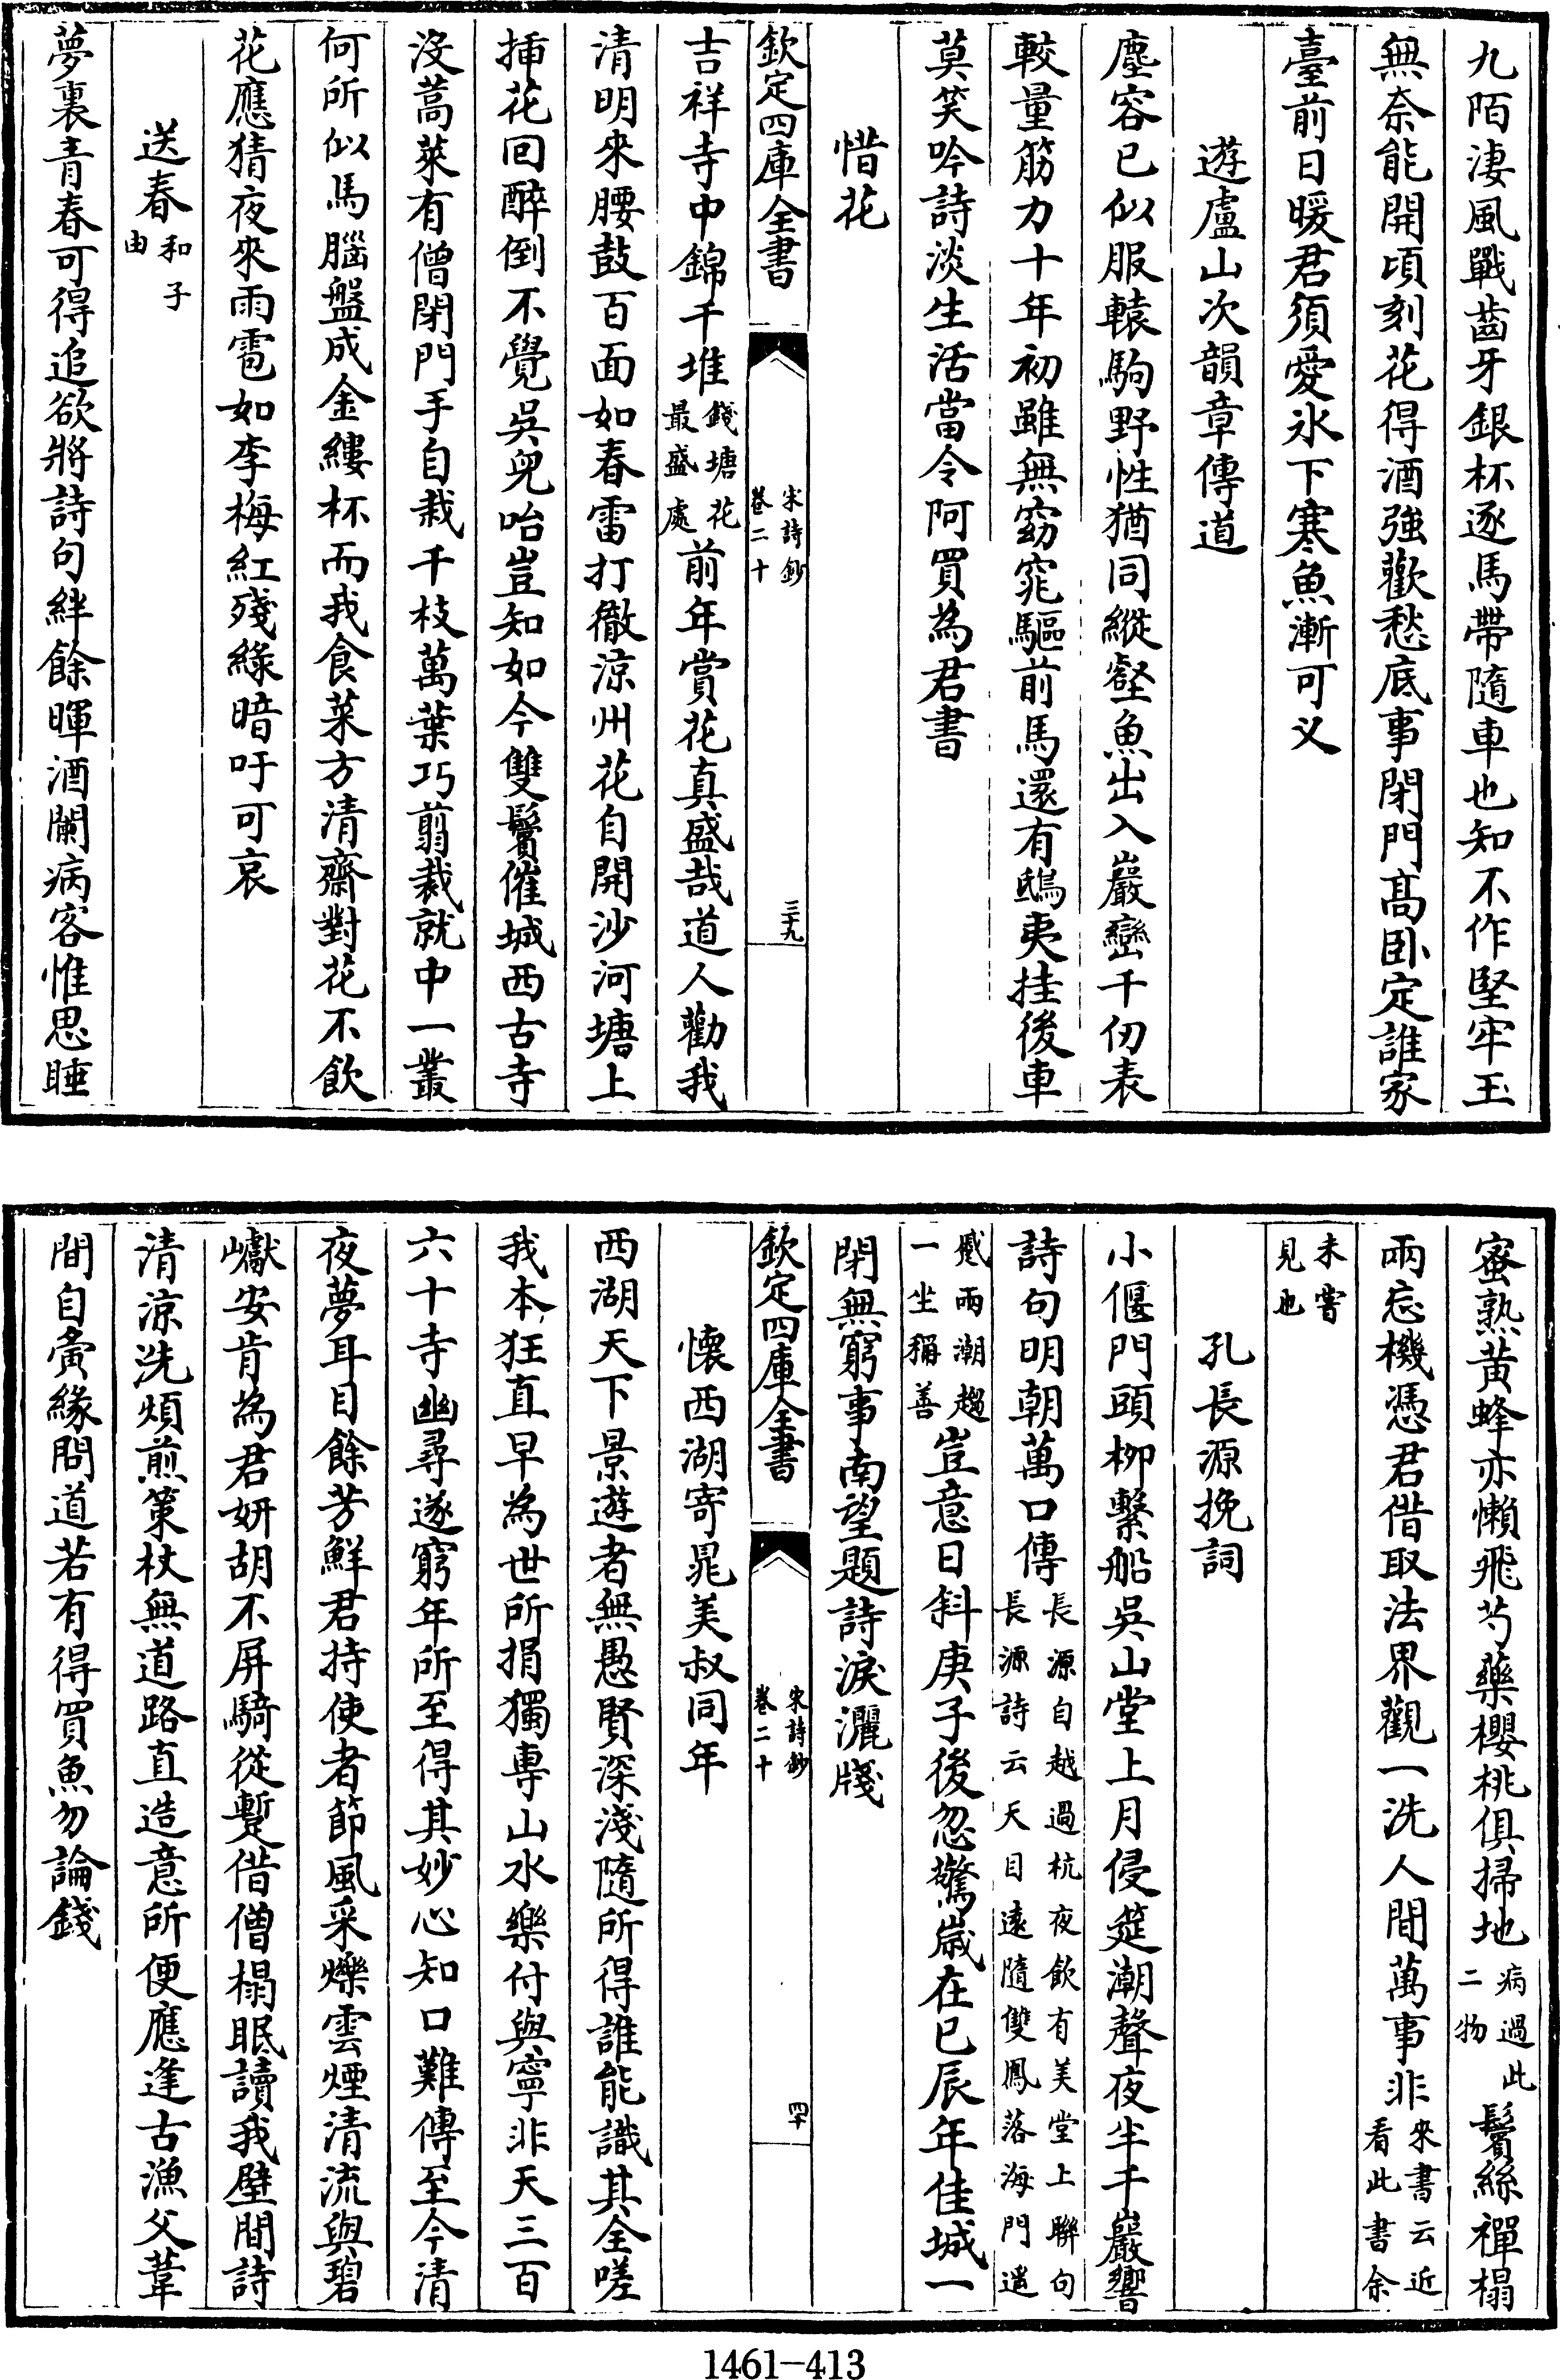 九陌淒風戰齒牙銀杯逐馬帶隨車也知不作堅牢玉
無奈能開頃刻花得酒強歡愁底事閉門高卧定誰家
臺前日暖君須愛氷下寒魚漸可义
遊廬山次韻章傳道
塵容已似服轅駒野性猶同縱壑魚出入巖巒千仞表
較量筋力十年初雖無窈窕驅前馬還有鴟夷挂後車
莫笑吟詩淡生活當令阿買為君書
惜花
欽定四庫全書
宋詩鈔
卷二十
三十九
吉祥寺中錦千堆錢塘花最盛處前年賞花真盛哉道人勸我
清明來腰鼓百面如春雷打徹涼州花自開沙河塘上
插花回醉倒不覺吳兒咍豈知如今雙鬢催城西古寺
沒蒿萊有僧閉門手自栽千枝萬葉巧翦裁就中一叢
何所似馬腦盤成金縷杯而我食菜方清齋對花不飲
花應猜夜來雨雹如李梅紅殘綠暗吁可哀
送春和子由
夢裏青春可得追欲將詩句絆餘暉酒闌病客惟思睡
蜜熟黃蜂亦懶飛芍藥櫻桃俱掃地病過此二物鬢絲禪榻
兩忘機憑君借取法界觀一洗人間萬事非來書云近看此書余
未嘗見也
孔長源挽詞
小偃門頭柳繫船吳山堂上月侵筵潮聲夜半千巖響
詩句明朝萬口傳長源自越過杭夜飲有美堂上聯句長源詩云天目遠隨雙鳳落海門遙
蹙兩潮趨一坐稱善豈意日斜庚子後忽驚歲在已辰年佳城一
閉無窮事南望題詩淚灑牋
欽定四庫全書
宋詩鈔
卷二十
四十
懷西湖寄晁美叔同年
西湖天下景遊者無愚賢深淺隨所得誰能識其全嗟
我本狂直早為世所捐獨專山水樂付與寧非天三百
六十寺幽尋遂窮年所至得其妙心知口難傳至今清
夜夢耳目餘芳鮮君持使者節風采爍雲煙清流與碧
巘安肯為君妍胡不屏騎從暫借僧榻眠讀我壁間詩
清涼洗煩煎策杖無道路直造意所便應逢古漁父葦
間自夤緣問道若有得買魚勿論錢
1461-413